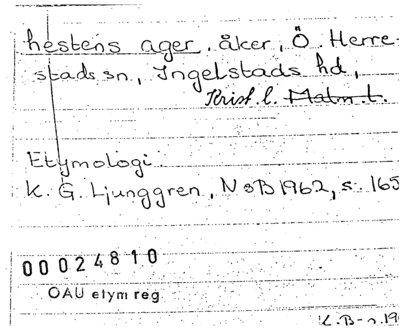 hestens ager, åker, Ö. Herre-
stads sn, Ingelstads hd,
Krist. l. Malm. l.
Etymologi
K. G. Ljunggren, NoB 1962, s. 165
00024810
OAU etym reg
K.B-n.19